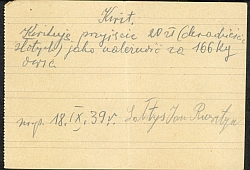 Kwit,
Kwituję przyjście 20 zł (dwadzieścia
złotych) jako należność za 166 kg
18. IX. 39 r. Sołtys Jan